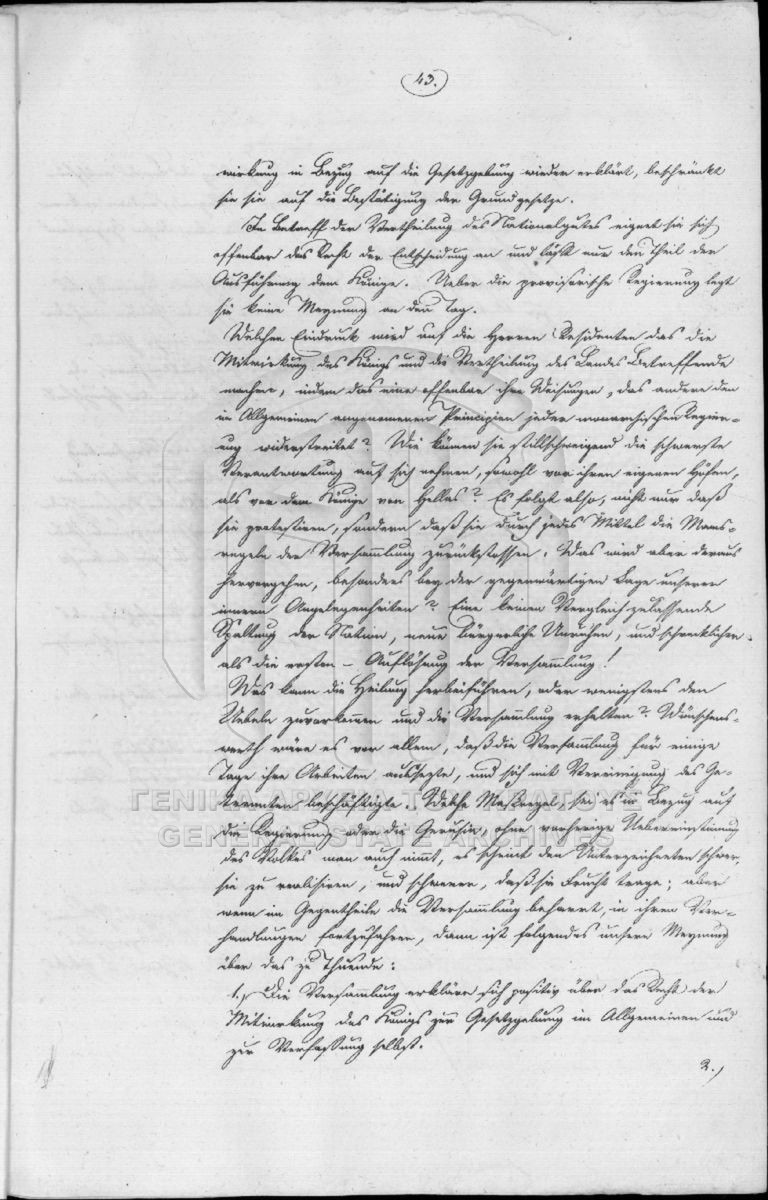 43.
wirkung in Bezug auf die Gesetzgebung wieder erklärt, beschränkt
sie sie auf die Bestätigung der Grundgesetze.
In Betreff der Vertheilung des Nationalgutes eignet sie sich
offenbar das Recht der Entscheidung an und läßt nur den Theil der
Ausführung dem Könige. Ueber die provisorische Regierung legt
sie keine Meynung an den Tag.
Welchen Eindruck wird auf die Herren Residenten das die
Mitwirkung des Königs und die Vertheilung des Landes Betreffende
machen, indem das eine offenbar ihren Weisungen, das andere den
im Allgemeinen angenommenen Principien jeder monarchischen Regier=
ung widerstreitet? Wie können sie stillschweigend die schwerste
Verantwortung auf sich nehmen, sowohl vor ihren eigenen Höfen,
als vor dem Könige von Hellas? Es folgt also, nicht nur daß
sie protestiren, sondern daß sie durch jedes Mittel die Maas=
regeln der Versammlung zurückstossen. Was wird aber daraus
hervorgehen, besonders bey der gegenwärtigen Lage unserer
innern Angelegenheiten? Eine keinen Vergleich zulassende
Spaltung der Nation, neue bürgerliche Unruhen, und schrecklicher
als die ersten – Auflösung der Versammlung!
Was kann die Heilung herbeiführen, oder wenigstens den
Uebeln zuvorkommen und die Versammlung erhalten? Wünschens=
werth wäre es vor allem, daß die Versammlung für einige
Tage ihre Arbeiten aussetzte, und sich mit Vereinigung des Ge=
trennten beschäftigte. Welche Maßregel, sey es in Bezug auf
die Regierung oder die Gerusia, ohne vorherige Uebereinstimmung
des Volkes man auch nimmt, es scheint den Unterzeichneten schwer,
sie zu realisiren, und schwerer, daß sie Frucht trage; aber
wenn im Gegentheile die Versammlung beharrt, in ihren Ver=
handlungen fortzufahren, dann ist folgendes unsere Meynung
über das zu Thuende:
1.) Die Versammlung erkläre sich positiv über das Recht der
Mitwirkung des Königs zur Gesetzgebung im Allgemeinen und
zur Verfassung selbst.
2.)
ΓΕΝΙΚΑ ΑΡΧΕΙΑ ΤΟΥ ΚΡΑΤΟΥΣ
GENERAL STATE ARCHIVES